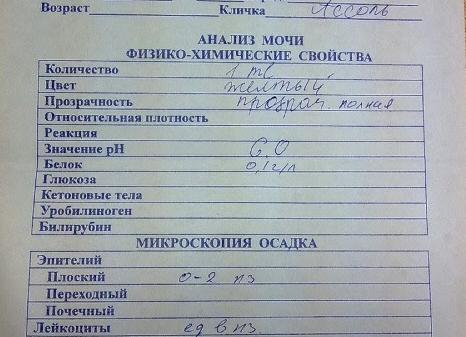 Возраст Кличка Ассоль
АНАЛИЗ МОЧИ
ФИЗИКО-ХИМИЧЕСКИЕ СВОЙСТВА
Количество 1 ml
Цвет желтый
Прозрачность прозрач. полная
Относительная плотность
Реакция
Значение pH 6.0
Белок 0,1 г/л
Глюкоза
Кетоновые тела
Уробилиноген
Билирубин
МИКРОСКОПИЯ ОСАДКА
Эпителий
Плоский 0-2 пз
Переходный
Почечный
Лейкоциты ед в пз